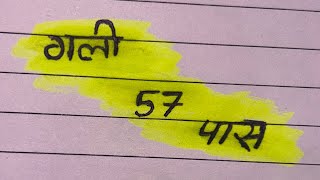 गली
57
पास